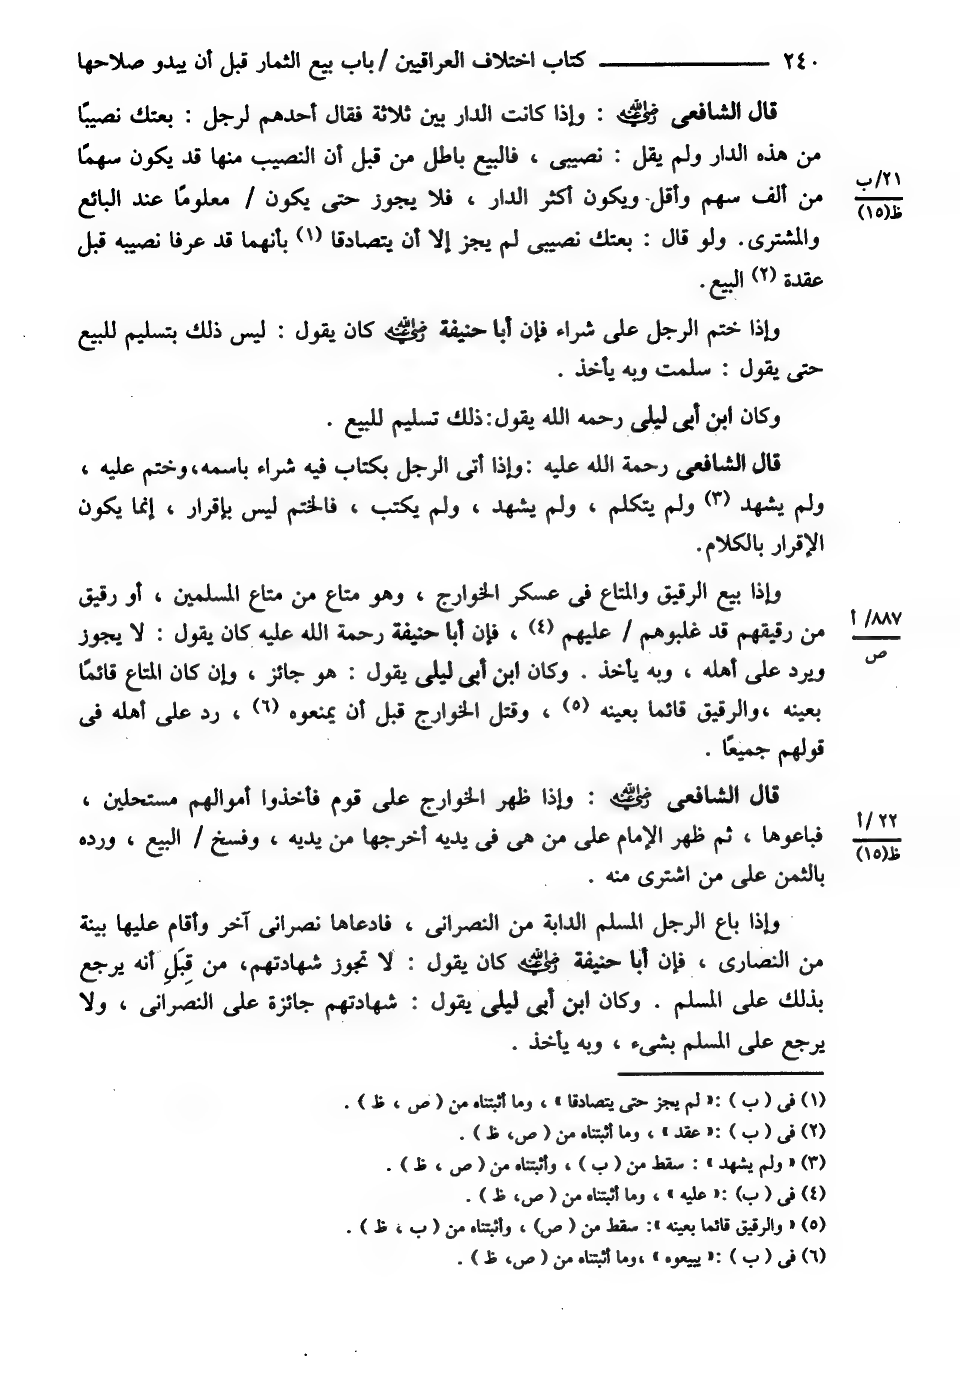 ٢٤٠ ــــــــــــــــ كتاب اختلاف العراقيين / باب بيع الثمار قبل أن يبدو صلاحها
قال الشافعى رضي الله عنه : وإذا كانت الدار بين ثلاثة فقال أحدهم لرجل : بعتك نصيبًا
من هذه الدار ولم يقل : نصيبى ، فالبيع باطل من قبل أن النصيب منها قد يكون سهمًا
٢١/ب
ظ(١٥)
من ألف سهم وأقل ويكون أكثر الدار ، فلا يجوز حتى يكون / معلومًا عند البائع
والمشترى. ولو قال : بعتك نصيبى لم يجز إلا أن يتصادقا (١) بأنهما قد عرفا نصيبه قبل
عقدة (٢) البيع.
وإذا ختم الرجل على شراء فإن أبا حنيفة رضي الله عنه كان يقول : ليس ذلك بتسليم للبيع
حتى يقول : سلمت وبه يأخذ .
وكان ابن أبى ليلى رحمه الله يقول:ذلك تسليم للبيع .
قال الشافعى رحمة الله عليه :وإذا أتى الرجل بكتاب فيه شراء باسمه،وختم عليه ،
ولم يشهد (٣) ولم يتكلم ، ولم يشهد ، ولم يكتب ، فالختم ليس بإقرار ، إنما يكون
الإقرار بالكلام.
وإذا بيع الرقيق والمتاع فى عسكر الخوارج ، وهو متاع من متاع المسلمين ، أو رقيق
٨٨٧/ أ
ص
من رقيقهم قد غلبوهم / عليهم (٤) ، فإن أبا حنيفة رحمة الله عليه كان يقول : لا يجوز
ويرد على أهله ، وبه يأخذ . وكان ابن أبى ليلى يقول : هو جائز ، وإن كان المتاع قائمًا
بعينه ،والرقيق قائما بعينه (٥) ، وقتل الخوارج قبل أن يمنعوه (٦) ، رد على أهله فى
قولهم جميعًا .
قال الشافعى رضي الله عنه : وإذا ظهر الخوارج على قوم فأخذوا أموالهم مستحلين ،
٢٢ /أ
ظ(١٥)
فباعوها ، ثم ظهر الإمام على من هى فى يديه أخرجها من يديه ، وفسخ / البيع ، ورده
بالثمن على من اشترى منه .
وإذا باع الرجل المسلم الدابة من النصرانى ، فادعاها نصرانى آخر وأقام عليها بينة
من النصارى ، فإن أبا حنيفة رضي الله عنه كان يقول : لا تجوز شهادتهم، من قِبَلِ أنه يرجع
بذلك على المسلم . وكان ابن أبى ليلى يقول : شهادتهم جائزة على النصرانى ، ولا
يرجع على المسلم بشىء ، وبه يأخذ .
(١) فى ( ب ) :« لم يجز حتى يتصادقا » ، وما أثبتناه من ( ص ، ظ ) .
(٢) فى ( ب ) :« عقد » ، وما أثبتناه من ( ص، ظ ) .
(٣) « ولم يشهد » : سقط من ( ب ) ، وأثبتناه من ( ص ، ظ ) .
(٤) فى ( ب) :« عليه » ، وما أثبتناه من ( ص، ظ ) .
(٥) « والرقيق قائما بعينه »: سقط من ( ص) ، وأثبتناه من ( ب ، ظ ) .
(٦) فى ( ب ) :« يبيعوه » ،وما أثبتناه من ( ص، ظ ) .